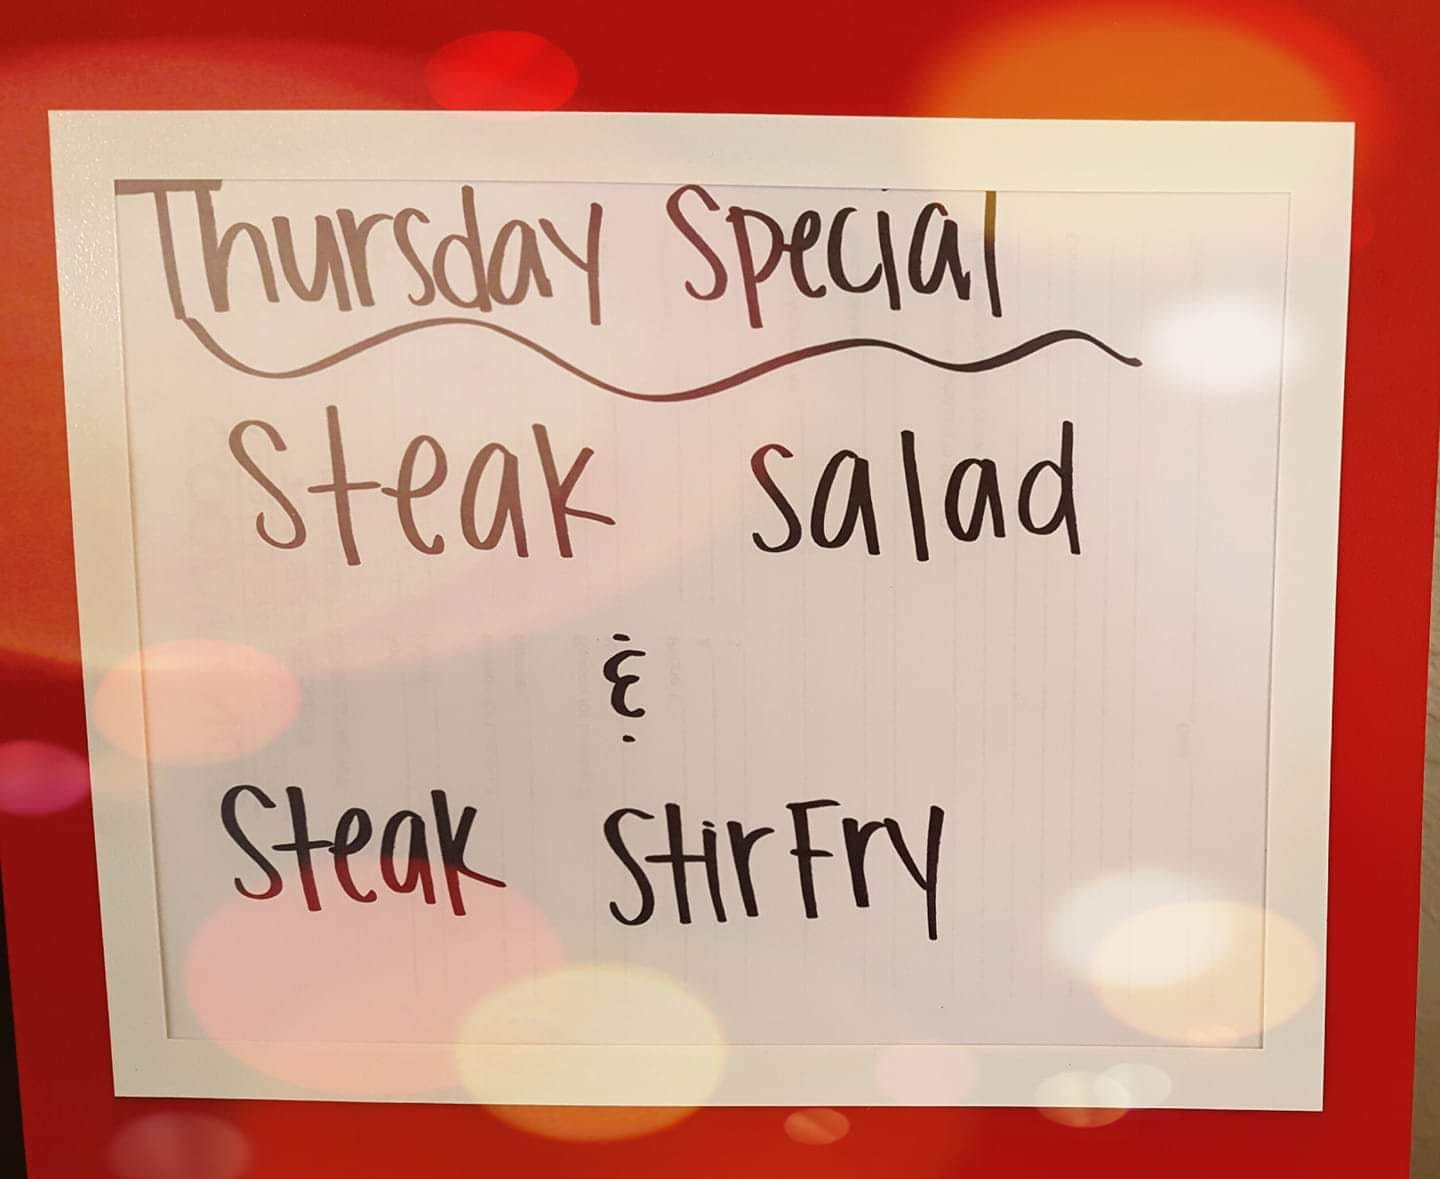 Thursday Special
Steak salad
&
Steak StirFry